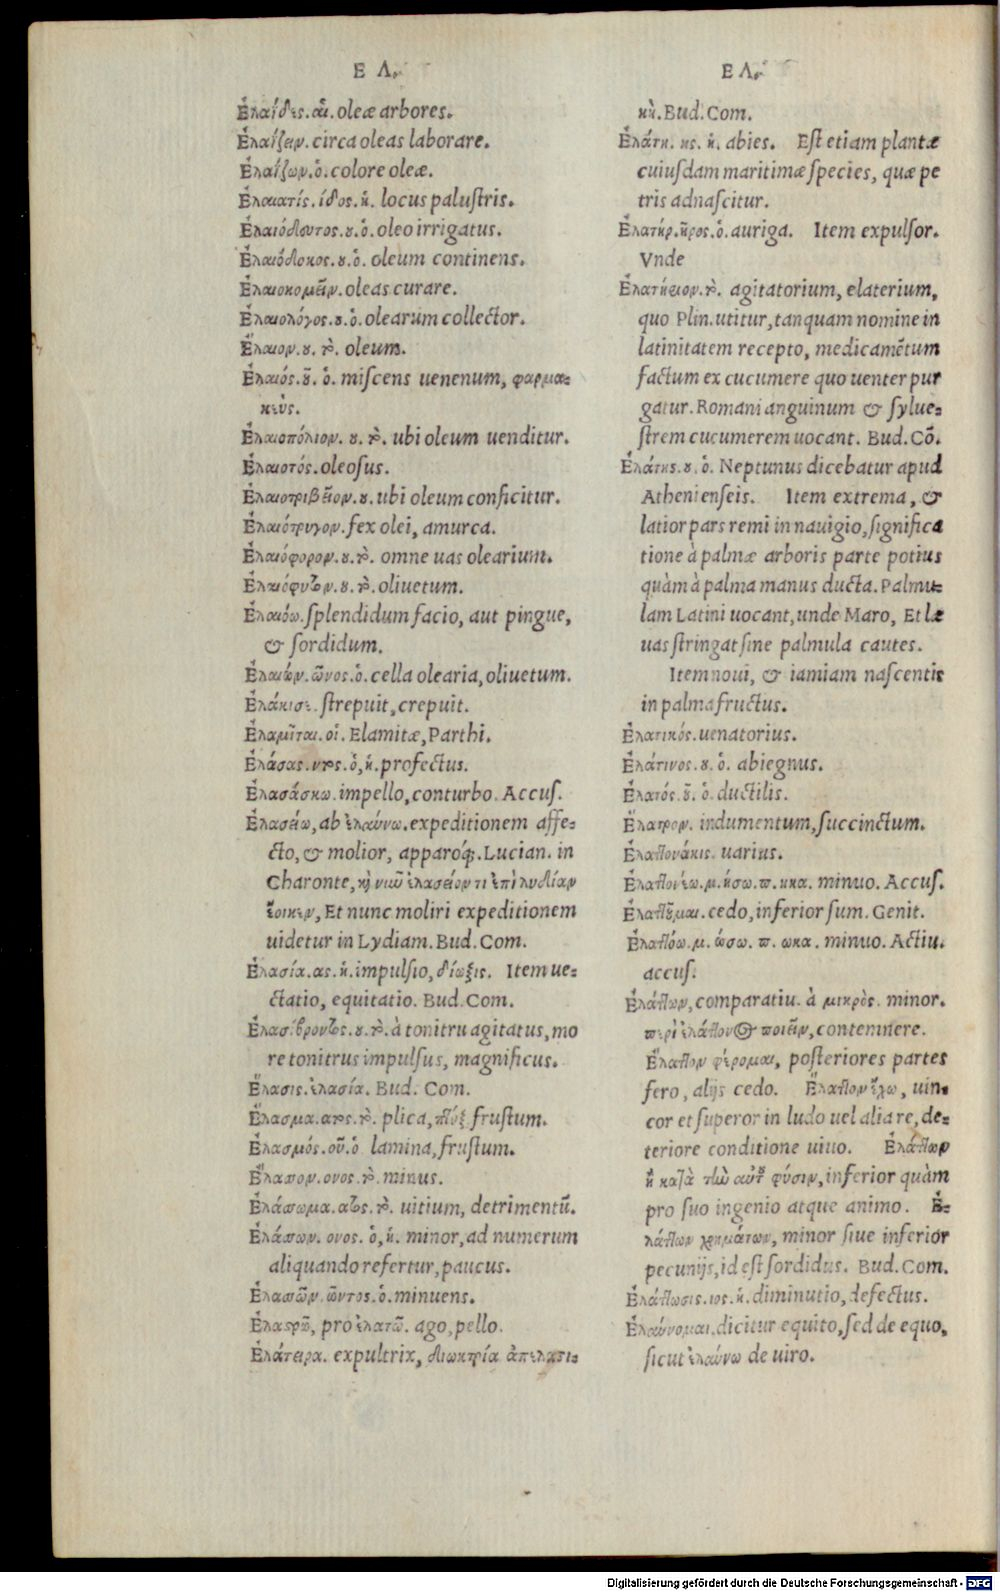 ΕΛ.
Ἐλαΐδες. αἱ. oleæ arbores.
Ἐλαΐζειν. circa oleas laborare.
Ἐλαΐζων. ὁ. colore oleæ.
Ἐλαιατίς. ίδος. ἡ. locus paluſtris.
Ἐλαιόδευτος. ου. ὁ. oleo irrigatus.
Ἐλαιόδοκος. ου. ὁ. oleum continens.
Ἐλαιοκομεῖν. oleas curare.
Ἐλαιολόγος. ου. ὁ. olearum collector.
Ἔλαιον. ου. τὸ. oleum.
Ἐλαιός. οῦ. ὁ. miſcens uenenum, φαρμα-
κεύς.
Ἐλαιοπώλιον. ου. τὸ. ubi oleum uenditur.
Ἐλαιοτός. oleoſus.
Ἐλαιοτριβεῖον. ου. ubi oleum conficitur.
Ἐλαιότρυγον. fex olei, amurca.
Ἐλαιόφορον. ου. τὸ. omne uas olearium.
Ἐλαιόφυτον. ου. τὸ. oliuetum.
Ἐλαιόω. ſplendidum facio, aut pingue,
& ſordidum.
Ἐλαιών. ῶνος. ὁ. cella olearia, oliuetum.
Ἐλάκισε. ſtrepuit, crepuit.
Ἐλαμῖται. οἱ. Elamitæ, Parthi.
Ἐλάσας. ντος. ὁ, ἡ. profectus.
Ἐλασάσκω. impello, conturbo. Accuſ.
Ἐλασείω, ab ἐλαύνω. expeditionem affe-
cto, & molior, apparoq́;. Lucian. in
Charonte, καὶ νῦν ἐλασείοντι ἐπὶ λυδίαν
ἔοικεν, Et nunc moliri expeditionem
uidetur in Lydiam. Bud. Com.
Ἐλασία. ας. ἡ. impulſio, δίωξις. Item ue-
ctatio, equitatio. Bud. Com.
Ἐλασίβροντος. ου. τὸ. à tonitru agitatus, mo
re tonitrus impulſus, magnificus.
Ἔλασις. ἐλασία. Bud. Com.
Ἔλασμα. ατος. τὸ. plica, πτύξ. fruſtum.
Ἐλασμός. οῦ. ὁ lamina, fruſtum.
Ἔλασσον. ονος. τὸ. minus.
Ἐλάσσωμα. ατος. τὸ. uitium, detrimentū.
Ἐλάσσων. ονος. ὁ, ἡ. minor, ad numerum
aliquando refertur, paucus.
Ἐλασσῶν. ῶντος. ὁ. minuens.
Ἐλαστρῶ, pro ἐλατῶ. ago, pello.
Ἐλάτειρα. expultrix, διωκτρία ἀπελατι-
ΕΛ.
κὴ. Bud. Com.
Ἐλάτη. ης. ἡ. abies. Eſt etiam plantæ
cuiuſdam maritimæ ſpecies, quæ pe
tris adnaſcitur.
Ἐλατήρ. ῆρος. ὁ. auriga. Item expulſor.
Vnde
Ἐλατήριον. τὸ. agitatorium, elaterium,
quo Plin. utitur, tanquam nomine in
latinitatem recepto, medicamētum
factum ex cucumere quo uenter pur
gatur. Romani anguinum & ſylue-
ſtrem cucumerem uocant. Bud. Cō.
Ἐλάτης. ου. ὁ. Neptunus dicebatur apud
Athenienſeis. Item extrema, &
latior pars remi in nauigio, ſignifica
tione à palmæ arboris parte potius
quàm à palma manus ducta. Palmu-
lam Latini uocant, unde Maro, Et læ
uas ſtringat ſine palmula cautes.
Item noui, & iamiam naſcentis
in palma fructus.
Ἐλατικός. uenatorius.
Ἐλάτινος. ου. ὁ. abiegnus.
Ἐλατός. οῦ. ὁ. ductilis.
Ἔλατρον. indumentum, ſuccinctum.
Ἐλαττονάκις. uarius.
Ἐλαττονέω. μ. ήσω. π. ηκα. minuo. Accuſ.
Ἐλαττοῦμαι. cedo, inferior ſum. Genit.
Ἐλαττόω. μ. ώσω. π. ωκα. minuo. Actiu.
accuſ.
Ἐλάττων, comparatiu. à μικρὸς. minor.
περὶ ἐλάττονος ποιεῖν, contemnere.
Ἔλαττον φέρομαι, poſteriores partes
fero, alijs cedo. Ἔλαττον ἔχω, uin-
cor et ſuperor in ludo uel alia re, de-
teriore conditione uiuo. Ἐλάττων
ἢ κατὰ τὴν αὐτοῦ φύσιν, inferior quàm
pro ſuo ingenio atque animo. Ἐ-
λάττων χρημάτων, minor ſiue inferior
pecunijs, id eſt ſordidus. Bud. Com.
Ἐλάττωσις. ιος. ἡ. diminutio, defectus.
Ἐλαύνομαι. dicitur equito, ſed de equo,
ſicut ἐλαύνω de uiro.
Digitalisierung gefördert durch die Deutsche Forschungsgemeinschaft - DFG